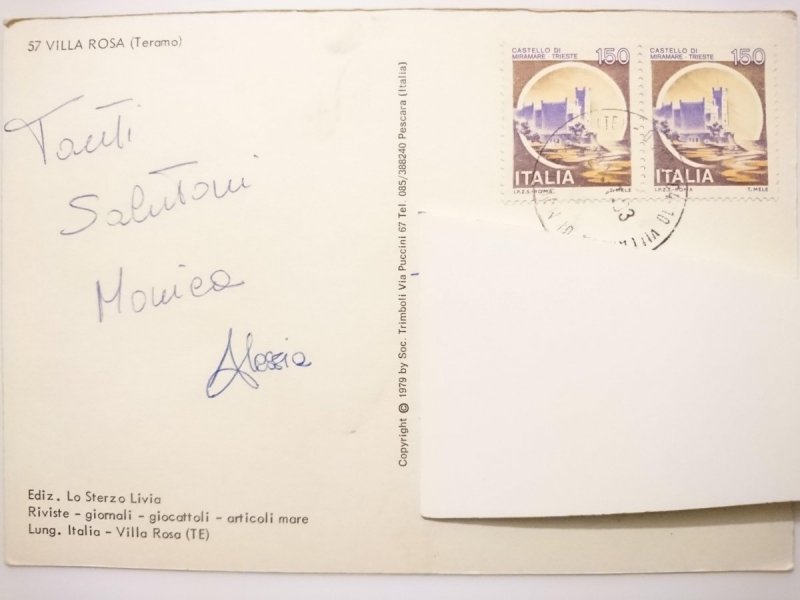 57 VILLA ROSA (Teramo)
Tanti
Salutoni
Monica
Alessia
Ediz. Lo Sterzo Livia
Riviste - giornali - giocattoli - articoli mare
Lung. Italia - Villa Rosa (TE)
Copyright © 1979 by Soc. Trimboli Via Puccini 67 Tel. 085/388240 Pescara (Italia)
CASTELLO DI
MIRAMARE - TRIESTE
150
ITALIA
I.P.Z.S. - ROMA
T. MELE
CASTELLO DI
MIRAMARE - TRIESTE
150
ITALIA
I.P.Z.S. - ROMA
T. MELE